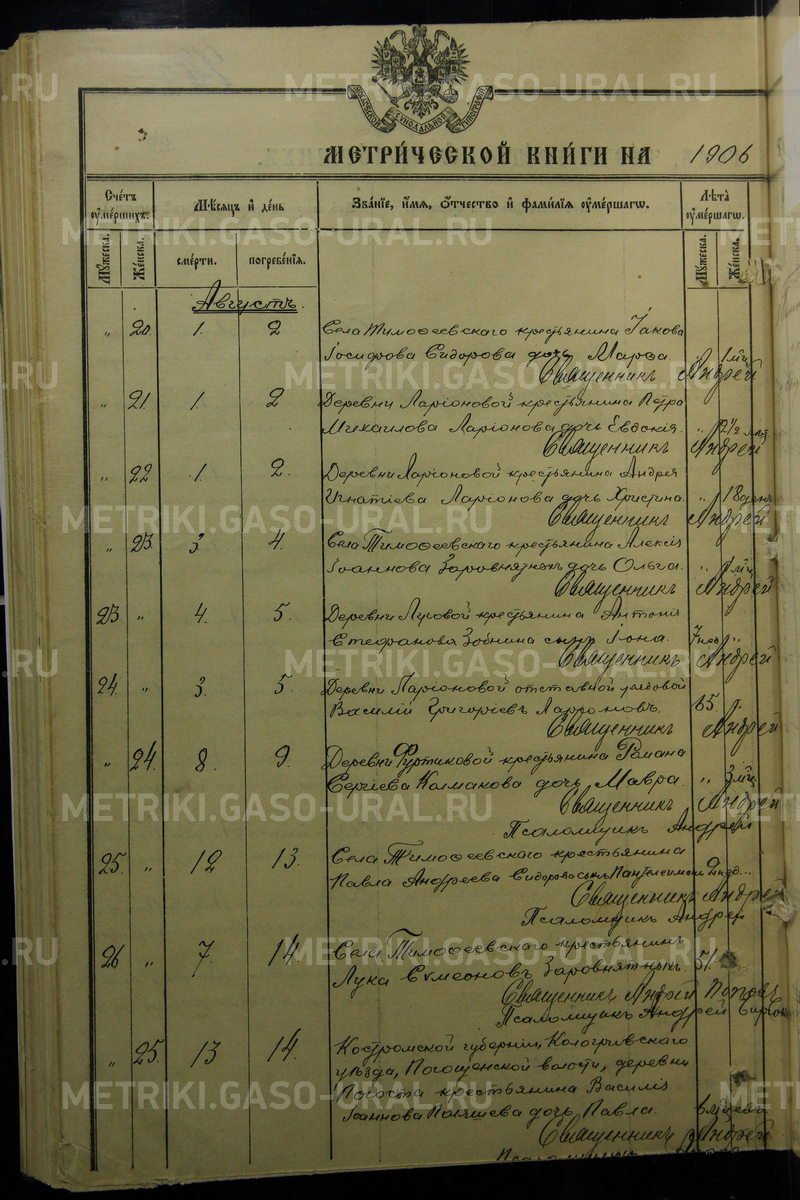 МЕТРИ́ЧЕСКОЙ КНИ́ГИ НА 1906
Сче́тъ ᲂу҆ме́ршихъ.
Мѣ́сѧцъ и҆ де́нь
Зва́нїе, и҆́мѧ, ѻ҆́тчество и҆ фами́лїѧ ᲂу҆ме́ршагѡ.
Лѣ́та ᲂу҆ме́ршагѡ.
Мꙋ́жеска.
Же́нска.
сме́рти.
погребе́нїѧ.
Мꙋ́жеска.
Же́нска.
Августъ.
„ 20. 1. 2 Села Тимоѳеевскаго крестьянина Іакова
Сидорова дочь Марѳа. „ 1 мѣц
Священникъ Андрей
„ 21. 1. 2 Деревни Ларіоновой крестьянина Петра
Михаилова Ларіонова дочь Евдокія. „ 2½
Священникъ Андрей
„ 22 1. 2. Деревни Ларіоновой крестьянина Андрея
Игнатіева Ларіонова дочь Христина. „
Священникъ Андрей
„ 23. 3 4. Села Тимоѳеевскаго крестьянина Алексія
Іоаннова Заровнятныхъ дочь Ольга. „ 1 мѣц
Священникъ Андрей
23 „ 4. 5. Деревни Луговой крестьянина Антонія
Стефанова Зобнина сынъ Іона. „
Священникъ Андрей
24. „ 3. 5. Деревни Ларіоновой отставной рядовой
Василій Григорьевъ Ларіоновъ. 65. „
Священникъ Андрей
„ 24. 8. 9. Деревни крестьянина Романа
Сергіева Колмакова дочь Мавра. „ 3 мѣц
Священникъ Андрей
Псаломщикъ Андрей
25. „ 12 13. Села Тимоѳеевскаго крестьянина
Павла Андреева Сидорова сынъ Пантелеимонъ 2 нед...
Священникъ Андрей
Псаломщикъ Андрей
26 „ 7. 14. Села Тимоѳеевскаго крестьянинъ
Лука Сѵмеоновъ Заровнятныхъ. 51.
Священникъ Андрей Поповъ
Псаломщикъ Андрей
„ 25. 13 14. Костромской губерніи, Кологривскаго
уѣзда, волости, деревни
Погоста крестьянина Василія
Іоаннова дочь Павла.
Священникъ Андрей
METRIKI.GASO-URAL.RU